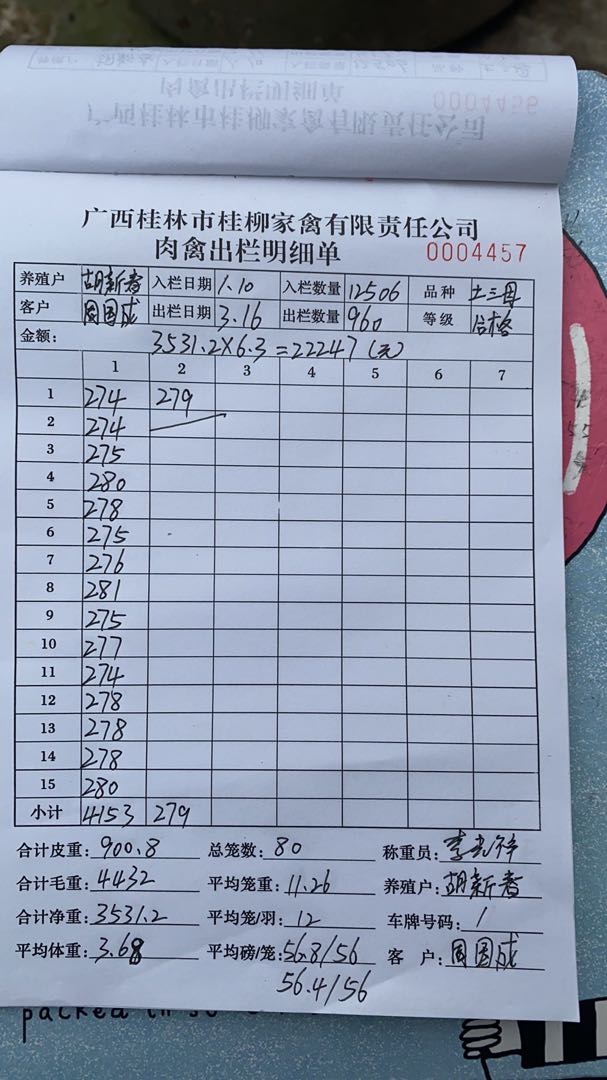 0004456
广西桂林市桂柳家禽有限责任公司
肉禽出栏明细单
广西桂林市桂柳家禽有限责任公司
肉禽出栏明细单 0004457
养殖户 胡新香 入栏日期 1.10 入栏数量 12506 品种 土三母
客户 周国成 出栏日期 3.16 出栏数量 960 等级 合格
金额: 3531.2×6.3=22247(元)
1 2 3 4 5 6 7
1 274 279
2 274
3 275
4 280
5 278
6 275
7 276
8 281
9 275
10 277
11 274
12 278
13 278
14 278
15 280
小计 4153 279
合计皮重: 900.8 总笼数: 80 称重员: 李光祥
合计毛重: 4432 平均笼重: 11.26 养殖户: 胡新香
合计净重: 3531.2 平均笼/羽: 12 车牌号码: 1
平均体重: 3.68 平均磅/笼: 56.8/56 客 户: 周国成
56.4/56
packed in